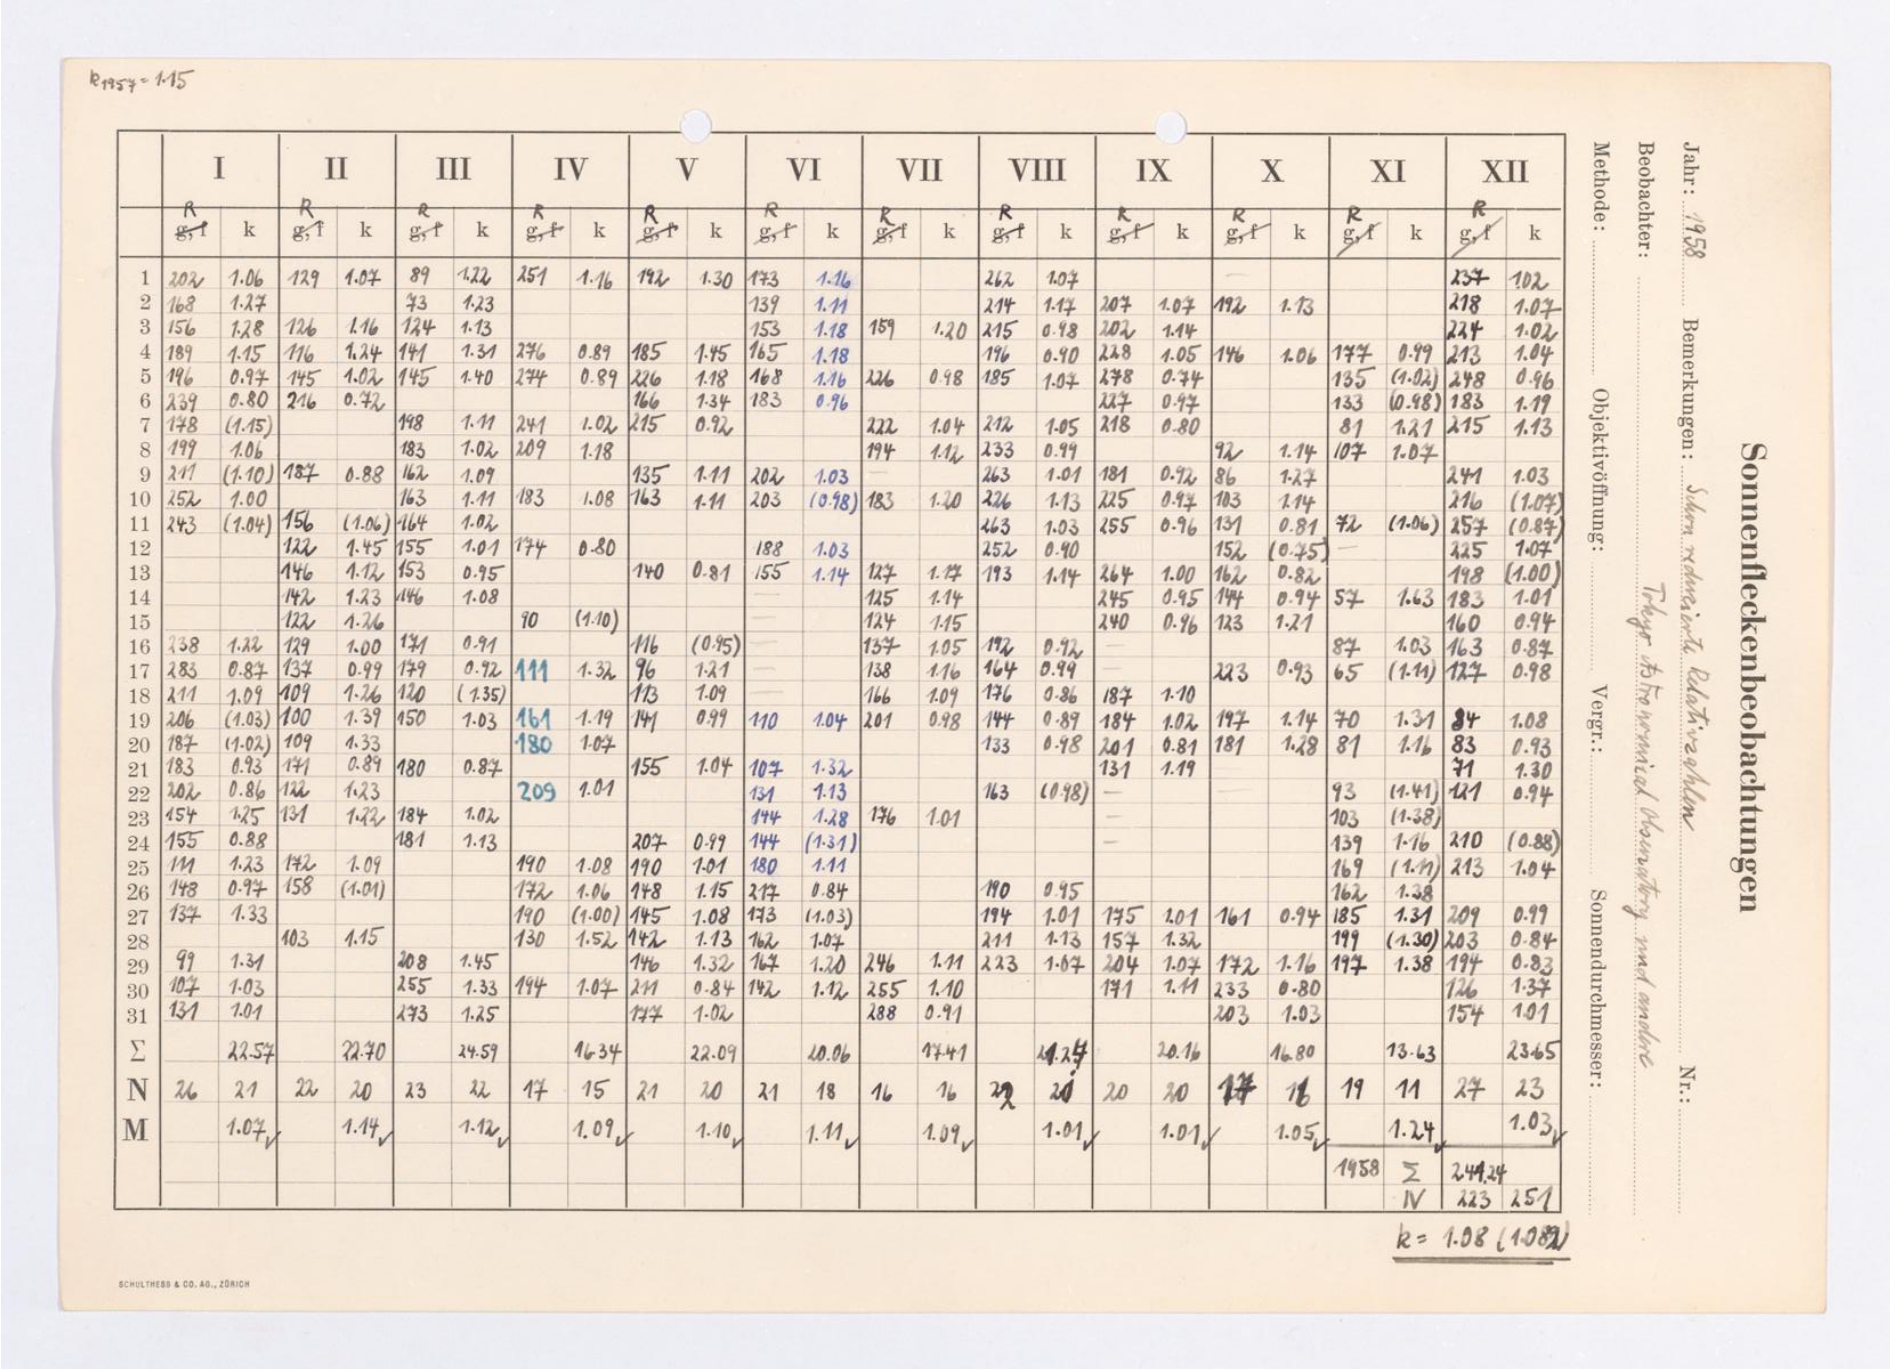 k1957 = 1.15
I II III IV V VI VII VIII IX X XI XII
R R R R R R R R R R R R
g, f k g, f k g, f k g, f k g, f k g, f k g, f k g, f k g, f k g, f k g, f k g, f k
1 202 1.06 129 1.07 89 1.22 251 1.16 192 1.30 173 1.16 262 1.07 237 1.02
2 168 1.27 73 1.23 139 1.11 214 1.17 207 1.07 192 1.13 218 1.07
3 156 1.28 126 1.16 124 1.13 153 1.18 159 1.20 215 0.98 202 1.14 224 1.02
4 189 1.15 116 1.24 141 1.31 276 0.89 185 1.45 165 1.18 196 0.90 228 1.05 146 1.06 177 0.99 213 1.04
5 196 0.97 145 1.02 145 1.40 274 0.89 226 1.18 168 1.16 226 0.98 185 1.07 278 0.74 135 (1.02) 248 0.96
6 239 0.80 216 0.72 166 1.34 183 0.96 227 0.97 133 (0.98) 183 1.19
7 178 (1.15) 198 1.11 241 1.02 215 0.92 222 1.04 212 1.05 218 0.80 81 1.21 215 1.13
8 199 1.06 183 1.02 209 1.18 194 1.12 233 0.99 92 1.14 107 1.07
9 211 (1.10) 187 0.88 162 1.09 135 1.11 202 1.03 — 263 1.01 181 0.92 86 1.27 241 1.03
10 252 1.00 163 1.11 183 1.08 163 1.11 203 (0.98) 183 1.20 226 1.13 225 0.97 103 1.14 216 (1.07)
11 243 (1.04) 156 (1.06) 164 1.02 263 1.03 255 0.96 131 0.81 72 (1.06) 257 (0.87)
12 122 1.45 155 1.01 174 0.80 188 1.03 252 0.90 152 (0.75) — 225 1.07
13 146 1.12 153 0.95 140 0.81 155 1.14 127 1.17 193 1.14 264 1.00 162 0.82 198 (1.00)
14 142 1.23 146 1.08 — 125 1.14 245 0.95 144 0.94 57 1.63 183 1.01
15 122 1.26 90 (1.10) 124 1.15 240 0.96 123 1.21 160 0.94
16 238 1.22 129 1.00 171 0.91 116 (0.95) — 137 1.05 192 0.92 — 87 1.03 163 0.87
17 283 0.87 137 0.99 179 0.92 111 1.32 96 1.21 — 138 1.16 164 0.99 — 223 0.93 65 (1.11) 127 0.98
18 211 1.09 109 1.26 120 (1.35) 113 1.09 — 166 1.09 176 0.86 187 1.10
19 206 (1.03) 100 1.39 150 1.03 161 1.19 141 0.99 110 1.04 201 0.98 144 0.89 184 1.02 197 1.14 70 1.31 84 1.08
20 187 (1.02) 109 1.33 180 1.07 133 0.98 201 0.81 181 1.28 81 1.16 83 0.93
21 183 0.93 171 0.89 180 0.87 155 1.04 107 1.32 131 1.19 71 1.30
22 202 0.86 122 1.23 209 1.01 131 1.13 163 (0.98) — — 93 (1.41) 121 0.94
23 154 1.25 131 1.22 184 1.02 144 1.28 176 1.01 — 103 (1.38)
24 155 0.88 181 1.13 207 0.99 144 (1.31) — 139 1.16 210 (0.88)
25 111 1.23 172 1.09 190 1.08 190 1.01 180 1.11 169 (1.11) 213 1.04
26 148 0.97 158 (1.01) 172 1.06 148 1.15 217 0.84 190 0.95 162 1.38
27 137 1.33 190 (1.00) 145 1.08 173 (1.03) 194 1.01 175 1.01 161 0.94 185 1.31 209 0.99
28 103 1.15 130 1.52 142 1.13 162 1.07 211 1.13 157 1.32 199 (1.30) 203 0.84
29 99 1.31 208 1.45 146 1.32 167 1.20 246 1.11 223 1.07 204 1.07 172 1.16 197 1.38 194 0.83
30 107 1.03 255 1.33 194 1.07 211 0.84 142 1.12 255 1.10 171 1.11 233 0.80 126 1.37
31 131 1.01 273 1.25 177 1.02 288 0.91 203 1.03 154 1.01
Σ 22.57 22.70 24.59 16.34 22.09 20.06 17.41 21.27 20.16 16.80 13.63 23.65
N 26 21 22 20 23 22 17 15 21 20 21 18 16 16 22 20 20 17 16 19 11 27 23
M 1.07✓ 1.14✓ 1.12✓ 1.09✓ 1.10✓ 1.11✓ 1.09✓ 1.01✓ 1.01✓ 1.05✓ 1.24✓ 1.03✓
1958 Σ 241.24
N 223 251
k = 1.08 (1.082)
SCHULTHESS & CO. AG., ZÜRICH
Sonnenfleckenbeobachtungen
Jahr: 1958 Bemerkungen: Schon reduzierte Relativzahlen Nr.:
Beobachter: Tokyo Astronomical Observatory und andere
Methode: Objektivöffnung: Vergr.: Sonnendurchmesser: